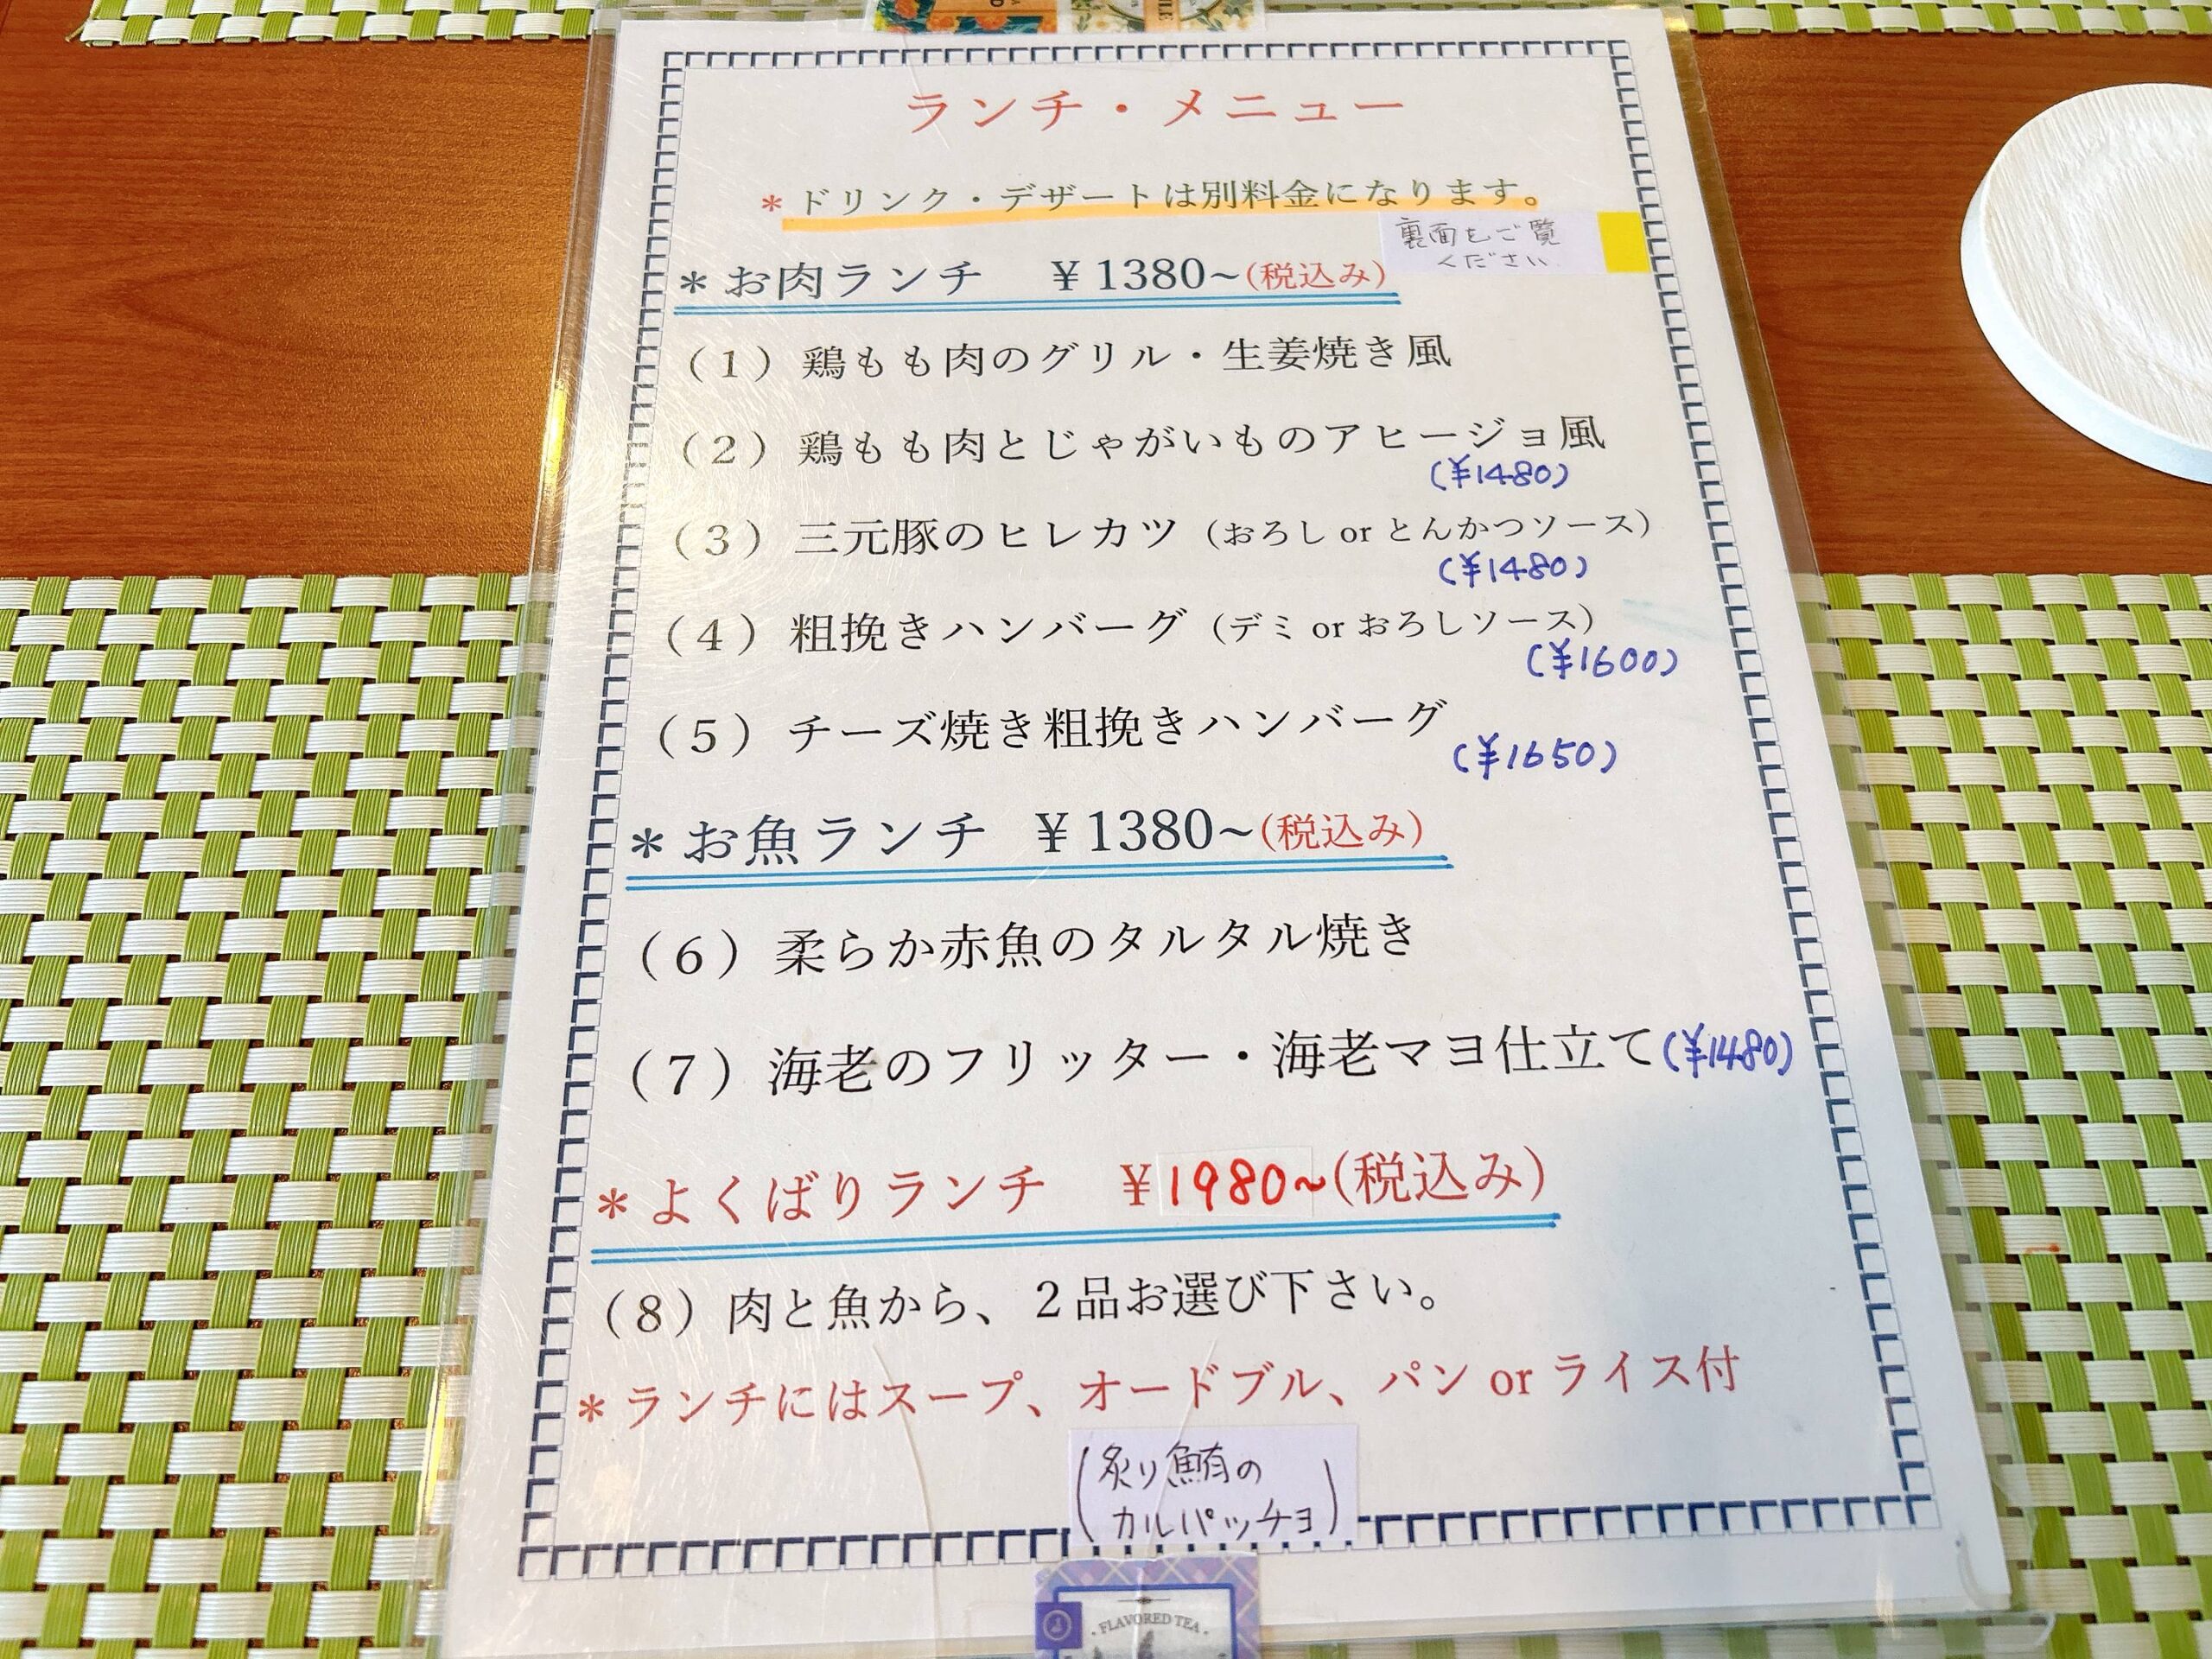 ランチ・メニュー
*ドリンク・デザートは別料金になります。
裏面をご覧
ください
*お肉ランチ ¥1380~(税込み)
(1)鶏もも肉のグリル・生姜焼き風
(2)鶏もも肉とじゃがいものアヒージョ風
(¥1480)
(3)三元豚のヒレカツ(おろし or とんかつソース)
(¥1480)
(4)粗挽きハンバーグ(デミ or おろしソース)
(¥1600)
(5)チーズ焼き粗挽きハンバーグ
(¥1650)
*お魚ランチ ¥1380~(税込み)
(6)柔らか赤魚のタルタル焼き
(7)海老のフリッター・海老マヨ仕立て(¥1480)
*よくばりランチ ¥1980~(税込み)
(8)肉と魚から、2品お選び下さい。
*ランチにはスープ、オードブル、パン or ライス付
(炙り鮪の
カルパッチョ)
・FLAVORED TEA・